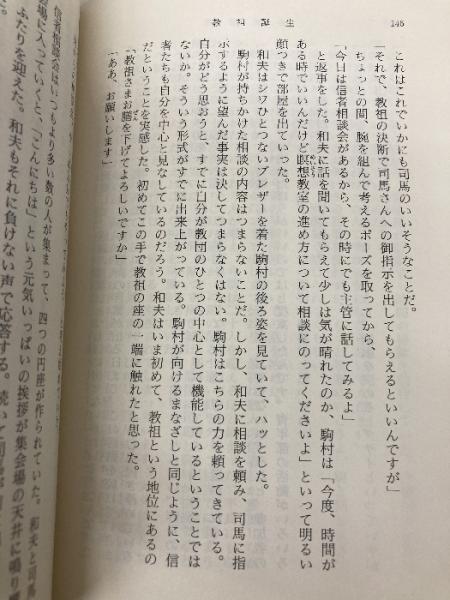 教祖誕生
146
これはこれでいかにも司馬のいいそうなことだ。
「それで、教祖の決断で司馬さんへの御指示を出してもらえるといいんですが」
ちょっとの間、腕を組んで考えるポーズを取ってから、
「今日は信者相談会があるから、その時にでも主管に話してみるよ」
と返事をした。和夫に話を聞いてもらえて少しは気が晴れたのか、駒村は「今度、時間が
ある時でいいんだけど瞑想教室の進め方について相談にのってくださいよ」といって明るい
顔つきで部屋を出ていった。
和夫はシワひとつないブレザーを着た駒村の後ろ姿を見ていて、ハッとした。
駒村が持ちかけた相談の内容はつまらないことだ。しかし、和夫に相談を頼み、司馬に指
示するように望んだ事実は決してつまらなくはない。駒村はこちらの力を頼ってきている。
自分がどう思おうと、すでに自分が教団のひとつの中心として機能しているということでは
ないか。そういう形式がすでに出来上がっている。駒村が向けるまなざしと同じように、信
者たちも自分を中心と見なしているのだろう。和夫はいま初めて、教祖という地位にあるの
だということを実感した。初めてこの手で教祖の座の一端に触れたと思った。
「教祖さまお膳を下げてよろしいですか」
「ああ、お願いします」
信者相談会はいつもより多い数の人が集まって、四つの円座が作られていた。和夫と司馬
場に入っていくと、「こんにちは」という元気いっぱいの挨拶が集会場の天井に鳴り響
ふたりを迎えた。和夫もそれに負けない声で応答する。